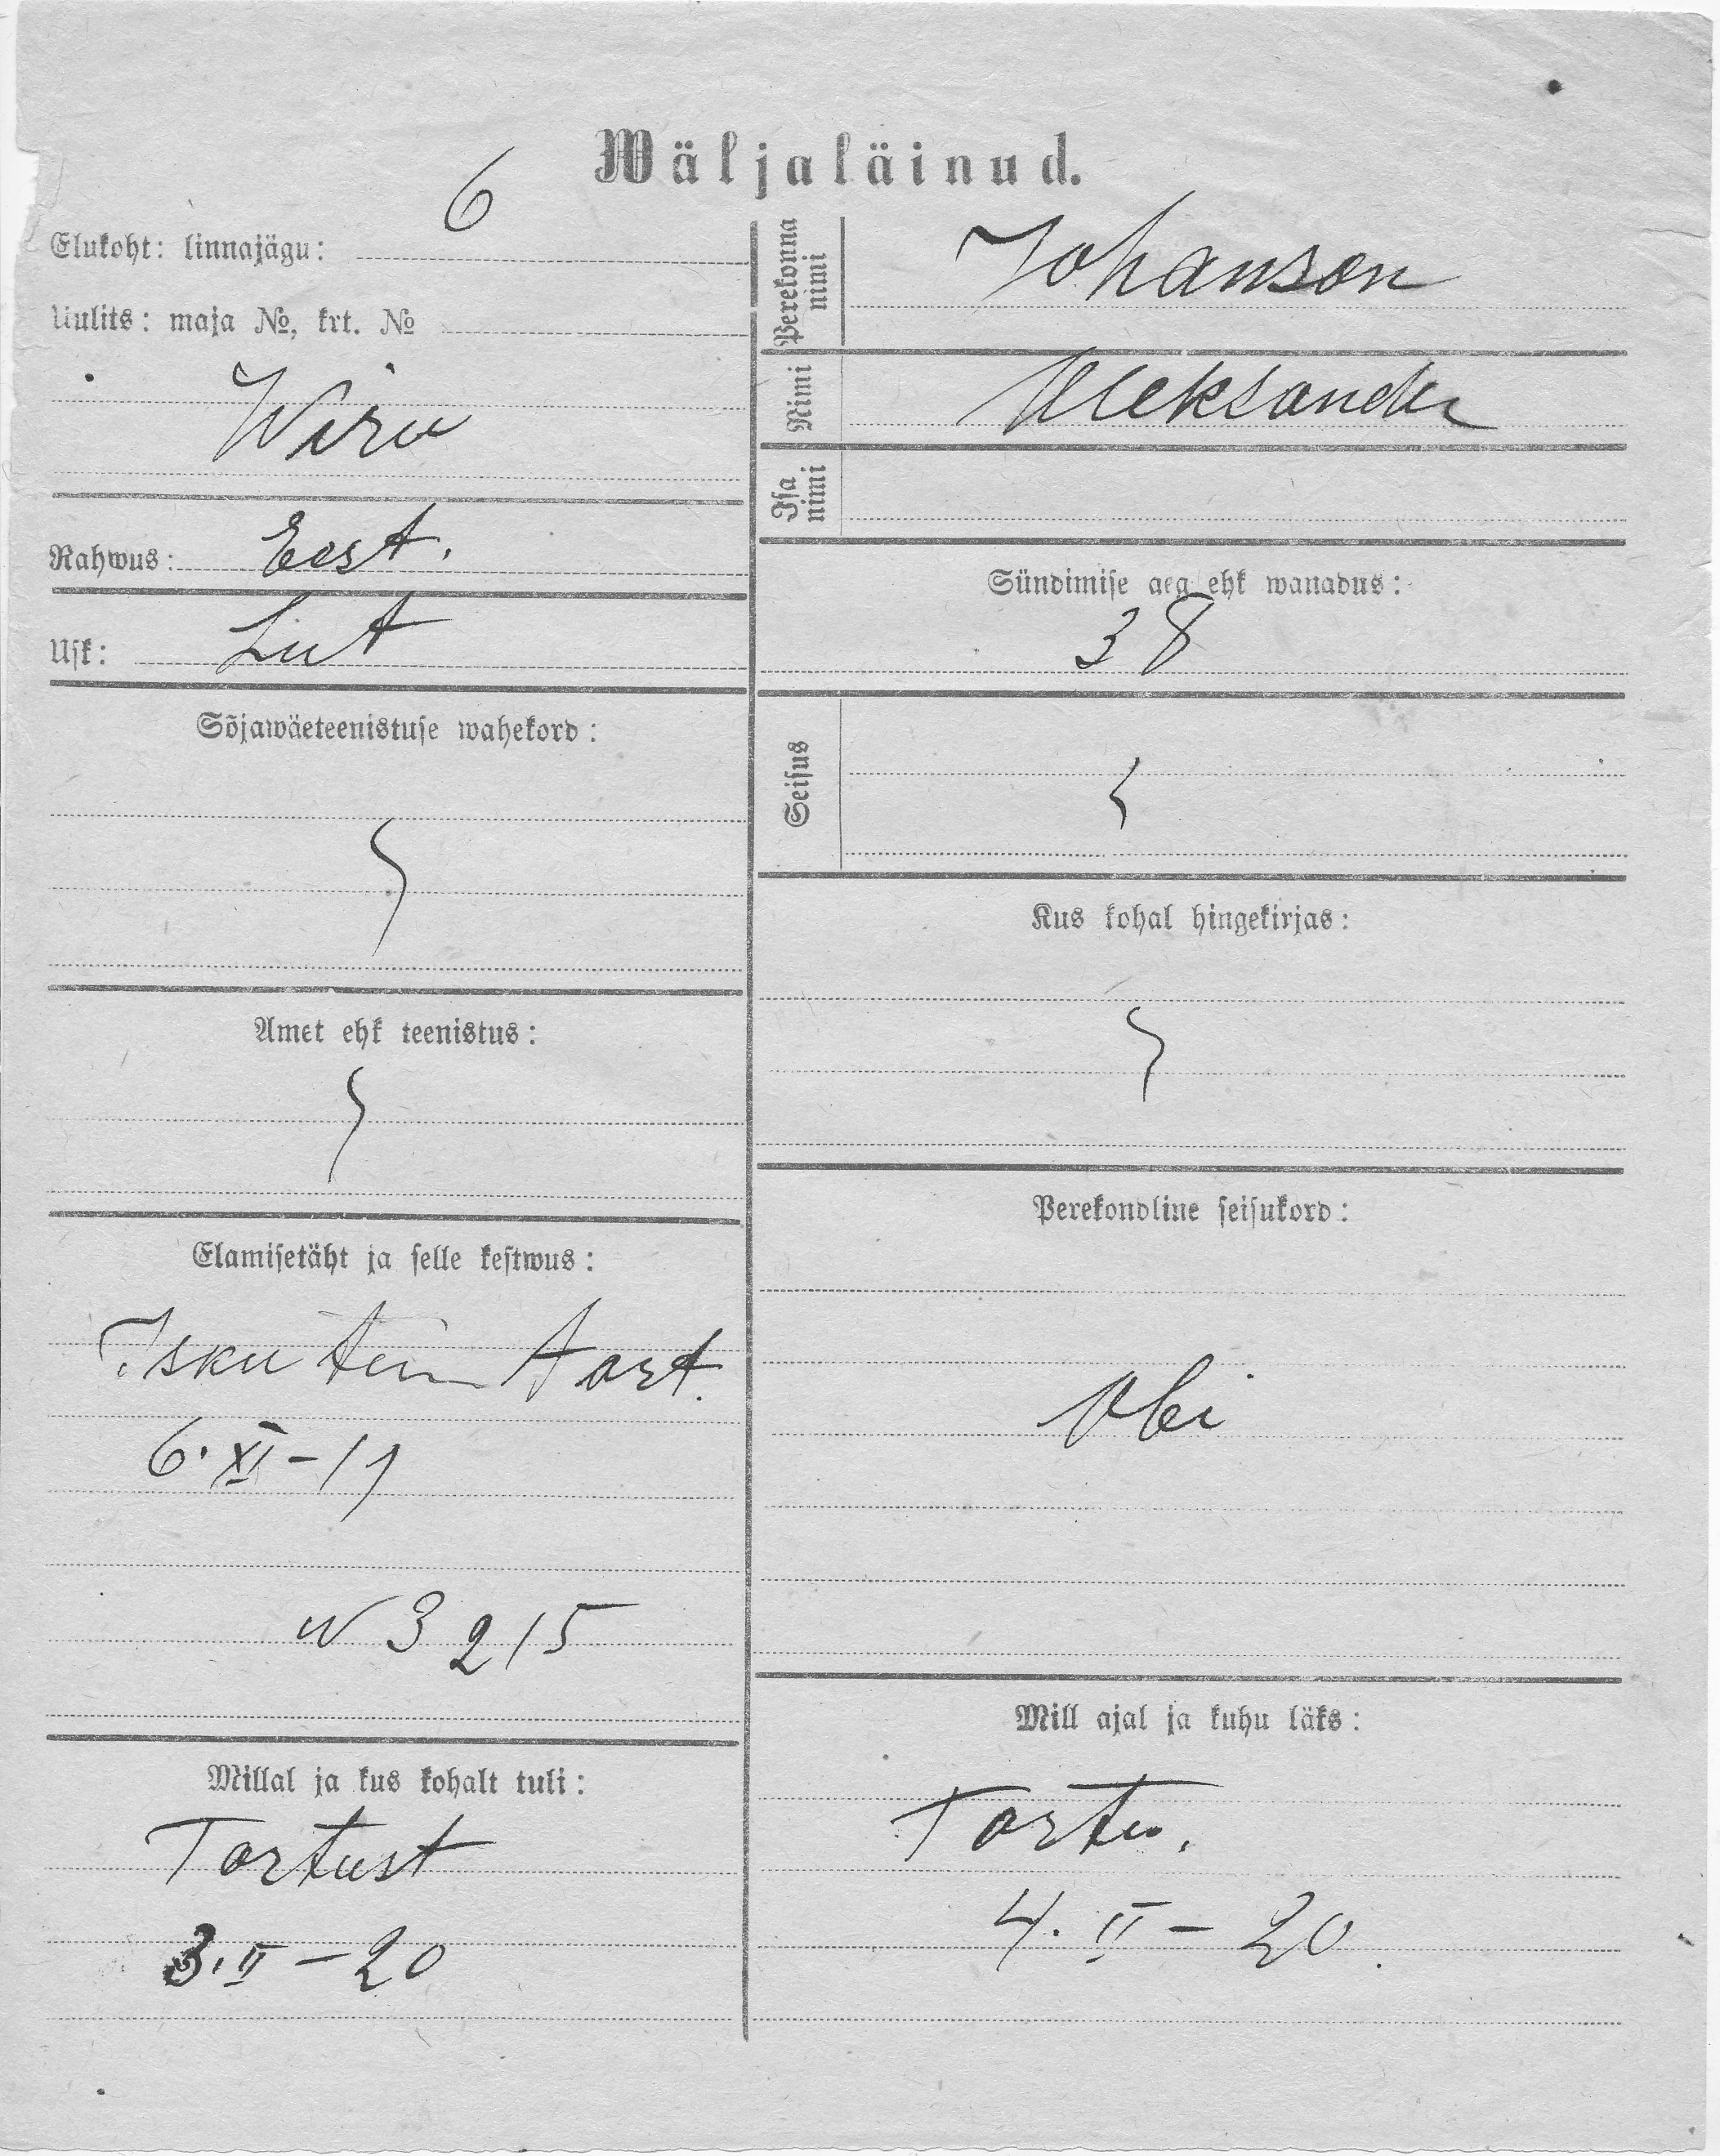 Wäljaläinud.
Elukoht: linnajägu: 6
Uulits: maja №, krt. №
Wiru
Rahwus: Eest.
Usk: Lut
Sõjawäeteenistuse wahekord:
Amet ehk teenistus:
Elamisetäht ja selle kestwus:
Isku tun
6. XI - 19
N 3215
Millal ja kus kohalt tuli:
Tartust
3. II - 20
Perekonna nimi Johanson
Nimi Aleksander
Isa nimi
Sündimise aeg ehk wanadus:
38
Seisus
Kus kohal hingekirjas:
Perekondline seisukord:
Abi
Mill ajal ja kuhu läks:
Tartu.
4. II - 20.